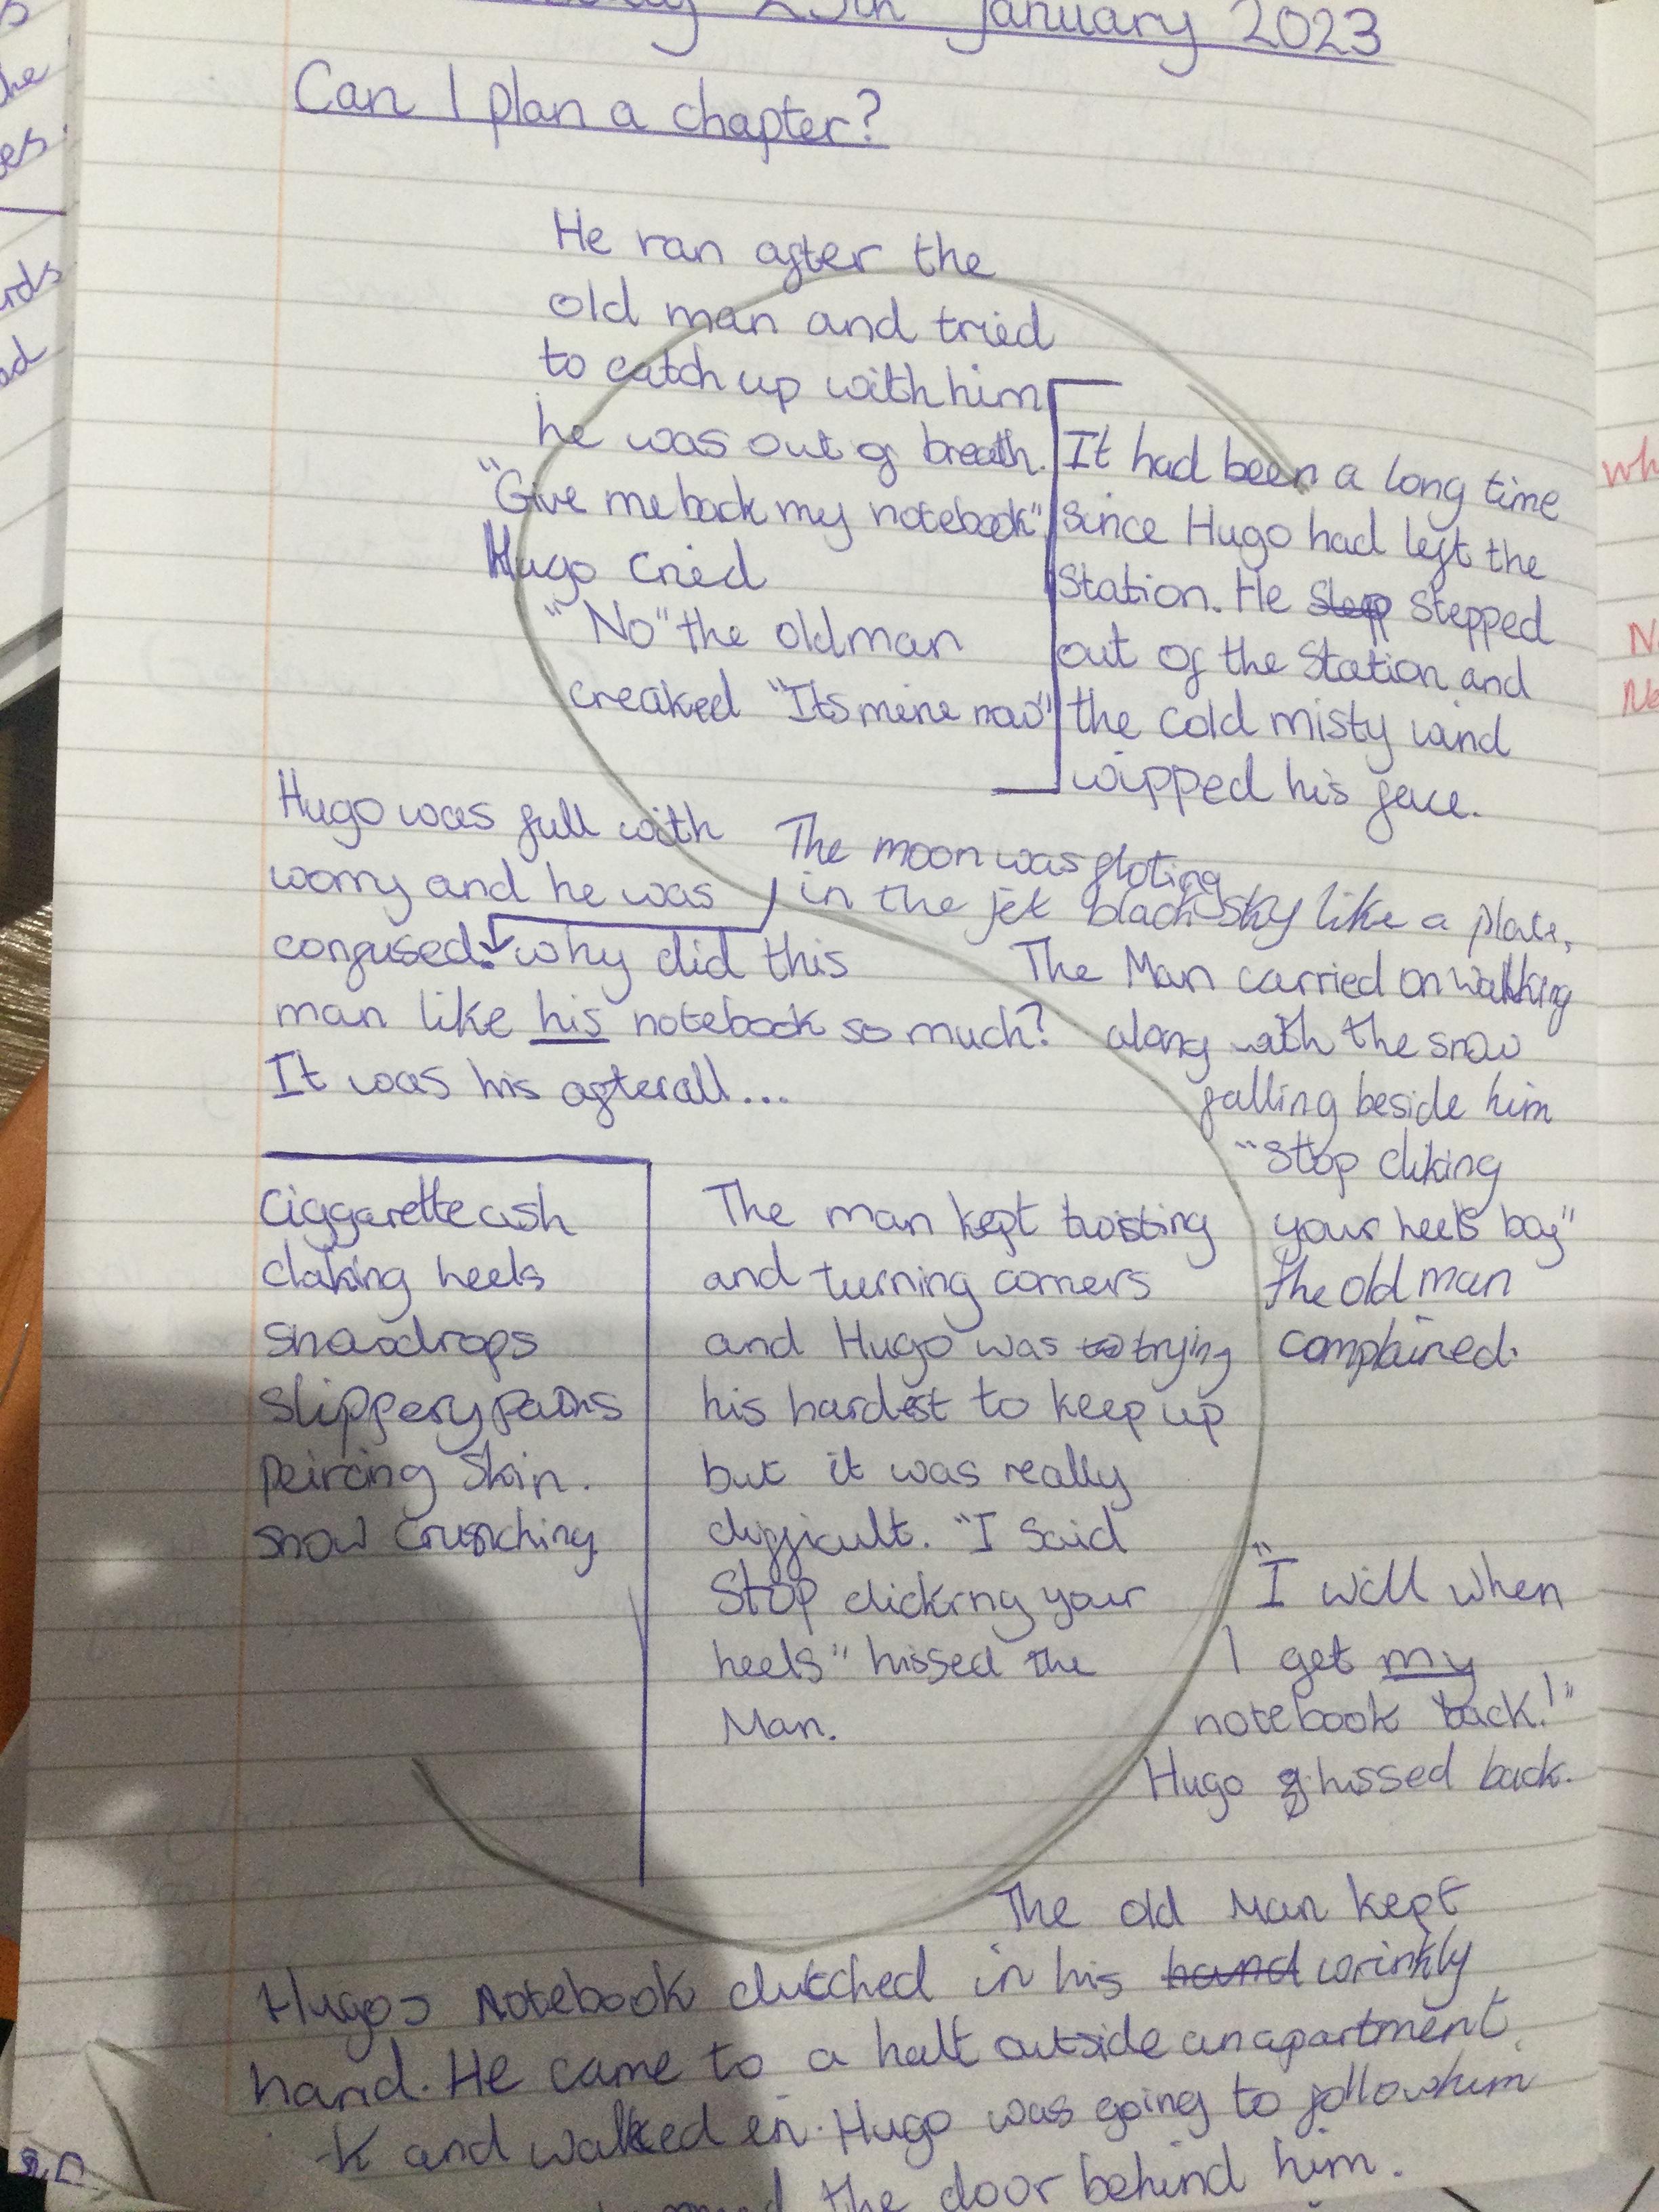 January 2023
Can I plan a chapter?
He ran after the
old man and tried
to catch up with him
he was out of breath.
"Give me back my notebook"
Hugo cried
"No" the old man
creaked "Its mine now"
It had been a long time
since Hugo had left the
Station. He stepp stepped
out of the Station and
the cold misty wind
wipped his face.
Hugo was full with
worry and he was
confused. why did this
man like his notebook so much?
It was his afterall...
The moon was floting
in the jet black sky like a plate,
The Man carried on walking
along with the snow
falling beside him
"Stop cliking
your heels boy"
the old man
complained.
Ciggarette ash
claking heels
Snowdrops
Slippery paths
Peircing Skin.
snow crunching.
The man kept twisting
and turning corners
and Hugo was to trying
his hardest to keep up
but it was really
difficult. "I Said
Stop clicking your
heels" hissed the
Man.
"I will when
I get my
notebook back!"
Hugo hissed back.
The old Man kept
Hugos Notebook clutched in his hand wrinkly
hand. He came to a halt outside an apartment
and walked in. Hugo was going to follow him
the door behind him.
wh
N
Ne
he
es
rds